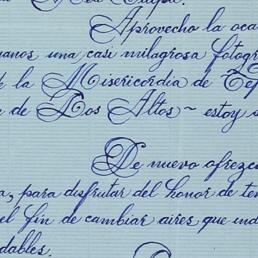 Aprovecho la oca
manos una casi milagrosa fotogr
la Misericordia de Tep
de Los Altos ~ estoy s
De nuevo ofrezc
a, para disfrutar del honor de ten
el fin de cambiar aires que ind
dables.